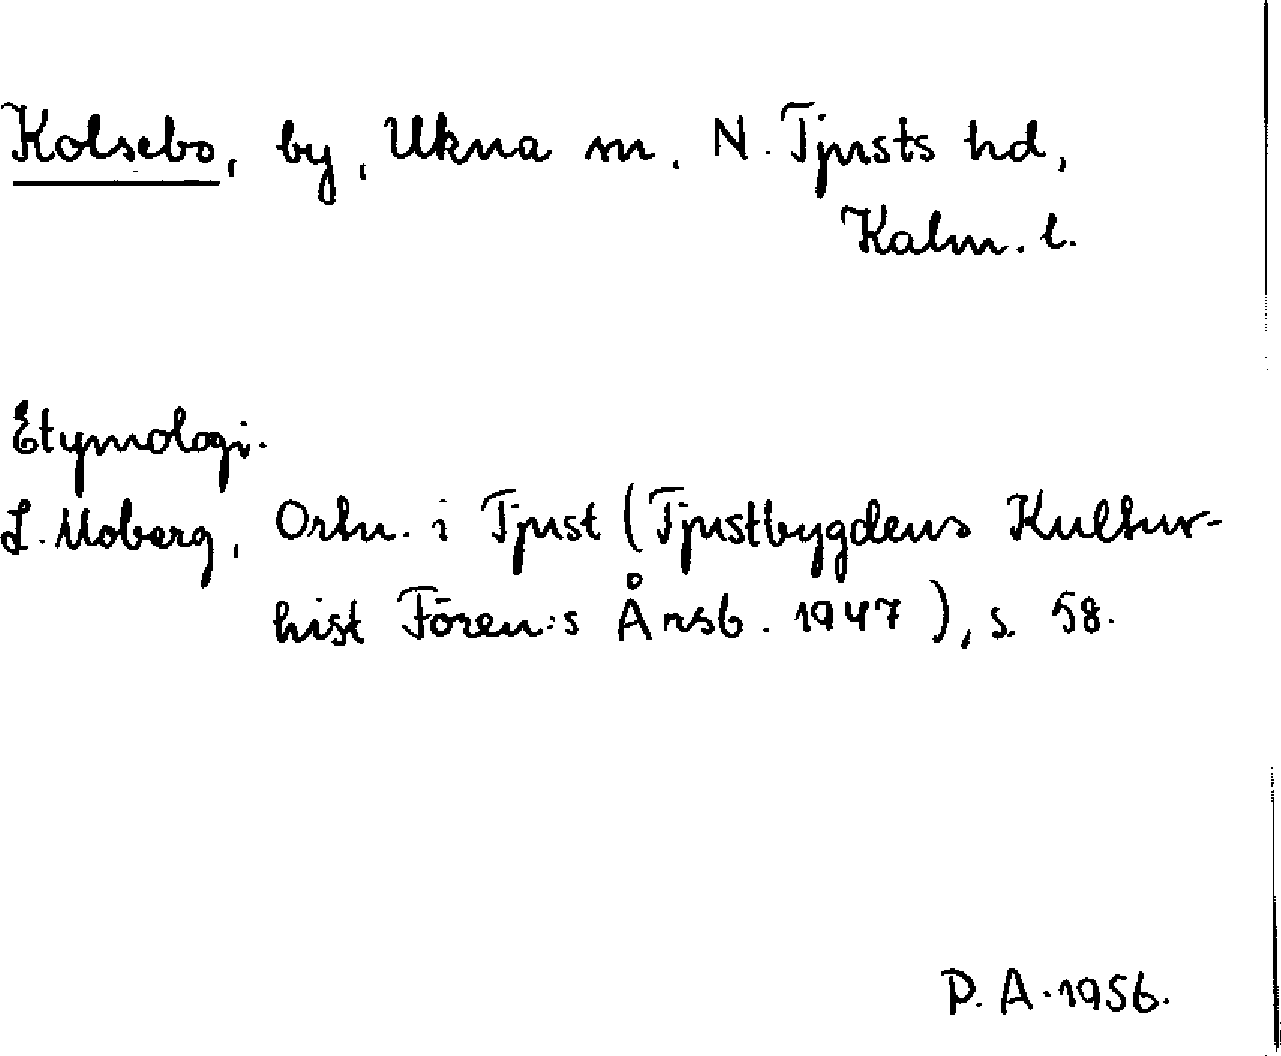 Kolsebo, by, Ukna sn, N. Tjusts hd,
Kalm. l.
Etymologi.
L. Moberg, Ortn. i Tjust (Tjustbygdens Kultur-
hist Fören:s Årsb. 1947), s. 58.
P. A. 1956.